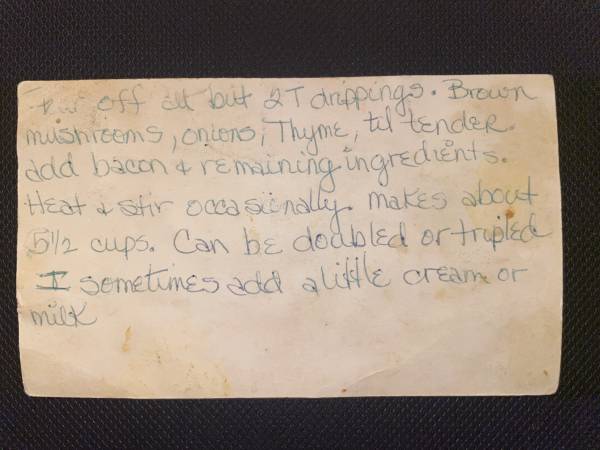 Pour off all but 2T drippings. Brown
mushrooms, onions, Thyme, til tender.
add bacon & remaining ingredients.
Heat & stir occasionally. makes about
5 1/2 cups. Can be doubled or tripled
I sometimes add a little cream or
milk